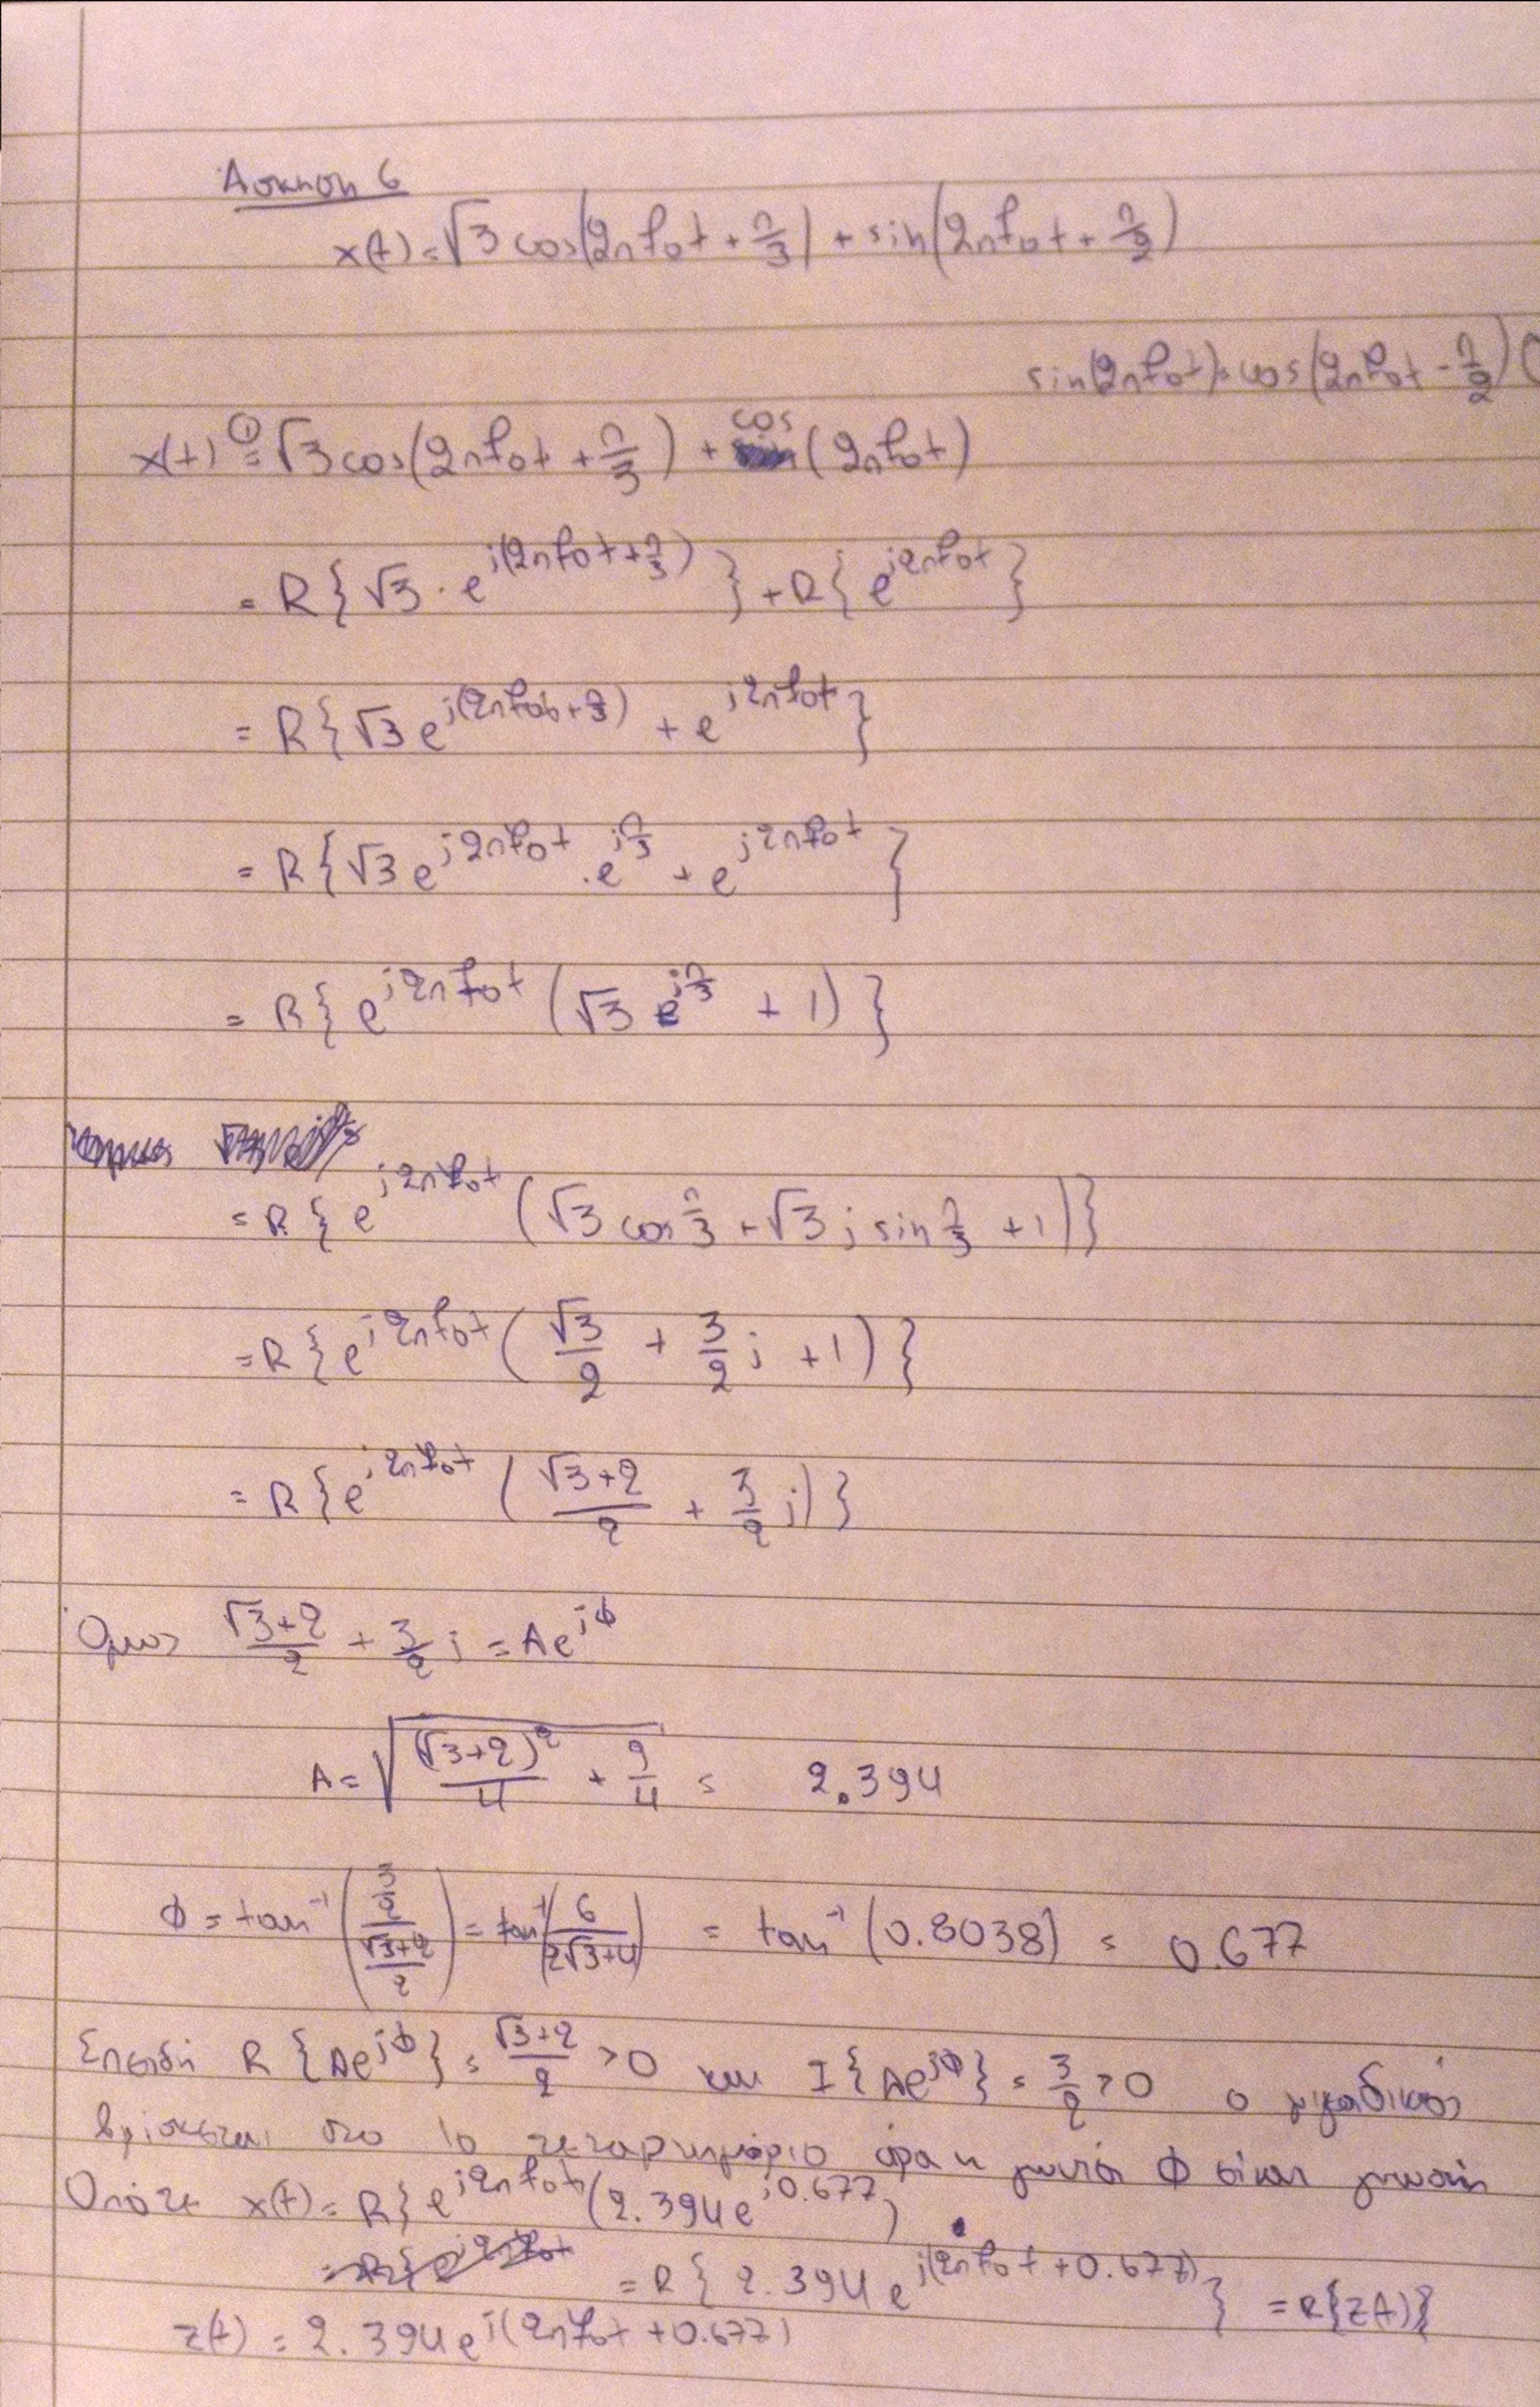 Άσκηση 6
x(t) = √3 cos(2πf₀t + π/3) + sin(2πf₀t + π/2)
sin(2πf₀t) = cos(2πf₀t - π/2) (
x(t) ①= √3 cos(2πf₀t + π/3) + cos(2πf₀t)
= R{√3 · e^{j(2πf₀t + π/3)}} + R{e^{j2πf₀t}}
= R{√3 e^{j(2πf₀t + π/3)} + e^{j2πf₀t}}
= R{√3 e^{j2πf₀t} · e^{jπ/3} + e^{j2πf₀t}}
= R{e^{j2πf₀t} (√3 e^{jπ/3} + 1)}
= R{e^{j2πf₀t} (√3 cos π/3 + √3 j sin π/3 + 1)}
= R{e^{j2πf₀t} (√3/2 + 3/2 j + 1)}
= R{e^{j2πf₀t} ((√3+2)/2 + 3/2 j)}
Όμως (√3+2)/2 + 3/2 j = Ae^{jφ}
A = √((√3+2)²/4 + 9/4) = 2.394
φ = tan⁻¹((3/2)/((√3+2)/2)) = tan⁻¹(6/(2√3+4)) = tan⁻¹(0.8038) = 0.677
Επειδή R{Ae^{jφ}} = (√3+2)/2 > 0 και I{Ae^{jφ}} = 3/2 > 0 ο μιγαδικός
βρίσκεται στο 1ο τεταρτημόριο άρα η γωνία φ είναι γνωστή
Οπότε x(t) = R{e^{j2πf₀t} (2.394 e^{j0.677})
= R{2.394 e^{j(2πf₀t + 0.677)}} = R{z(t)}
z(t) = 2.394 e^{j(2πf₀t + 0.677)}